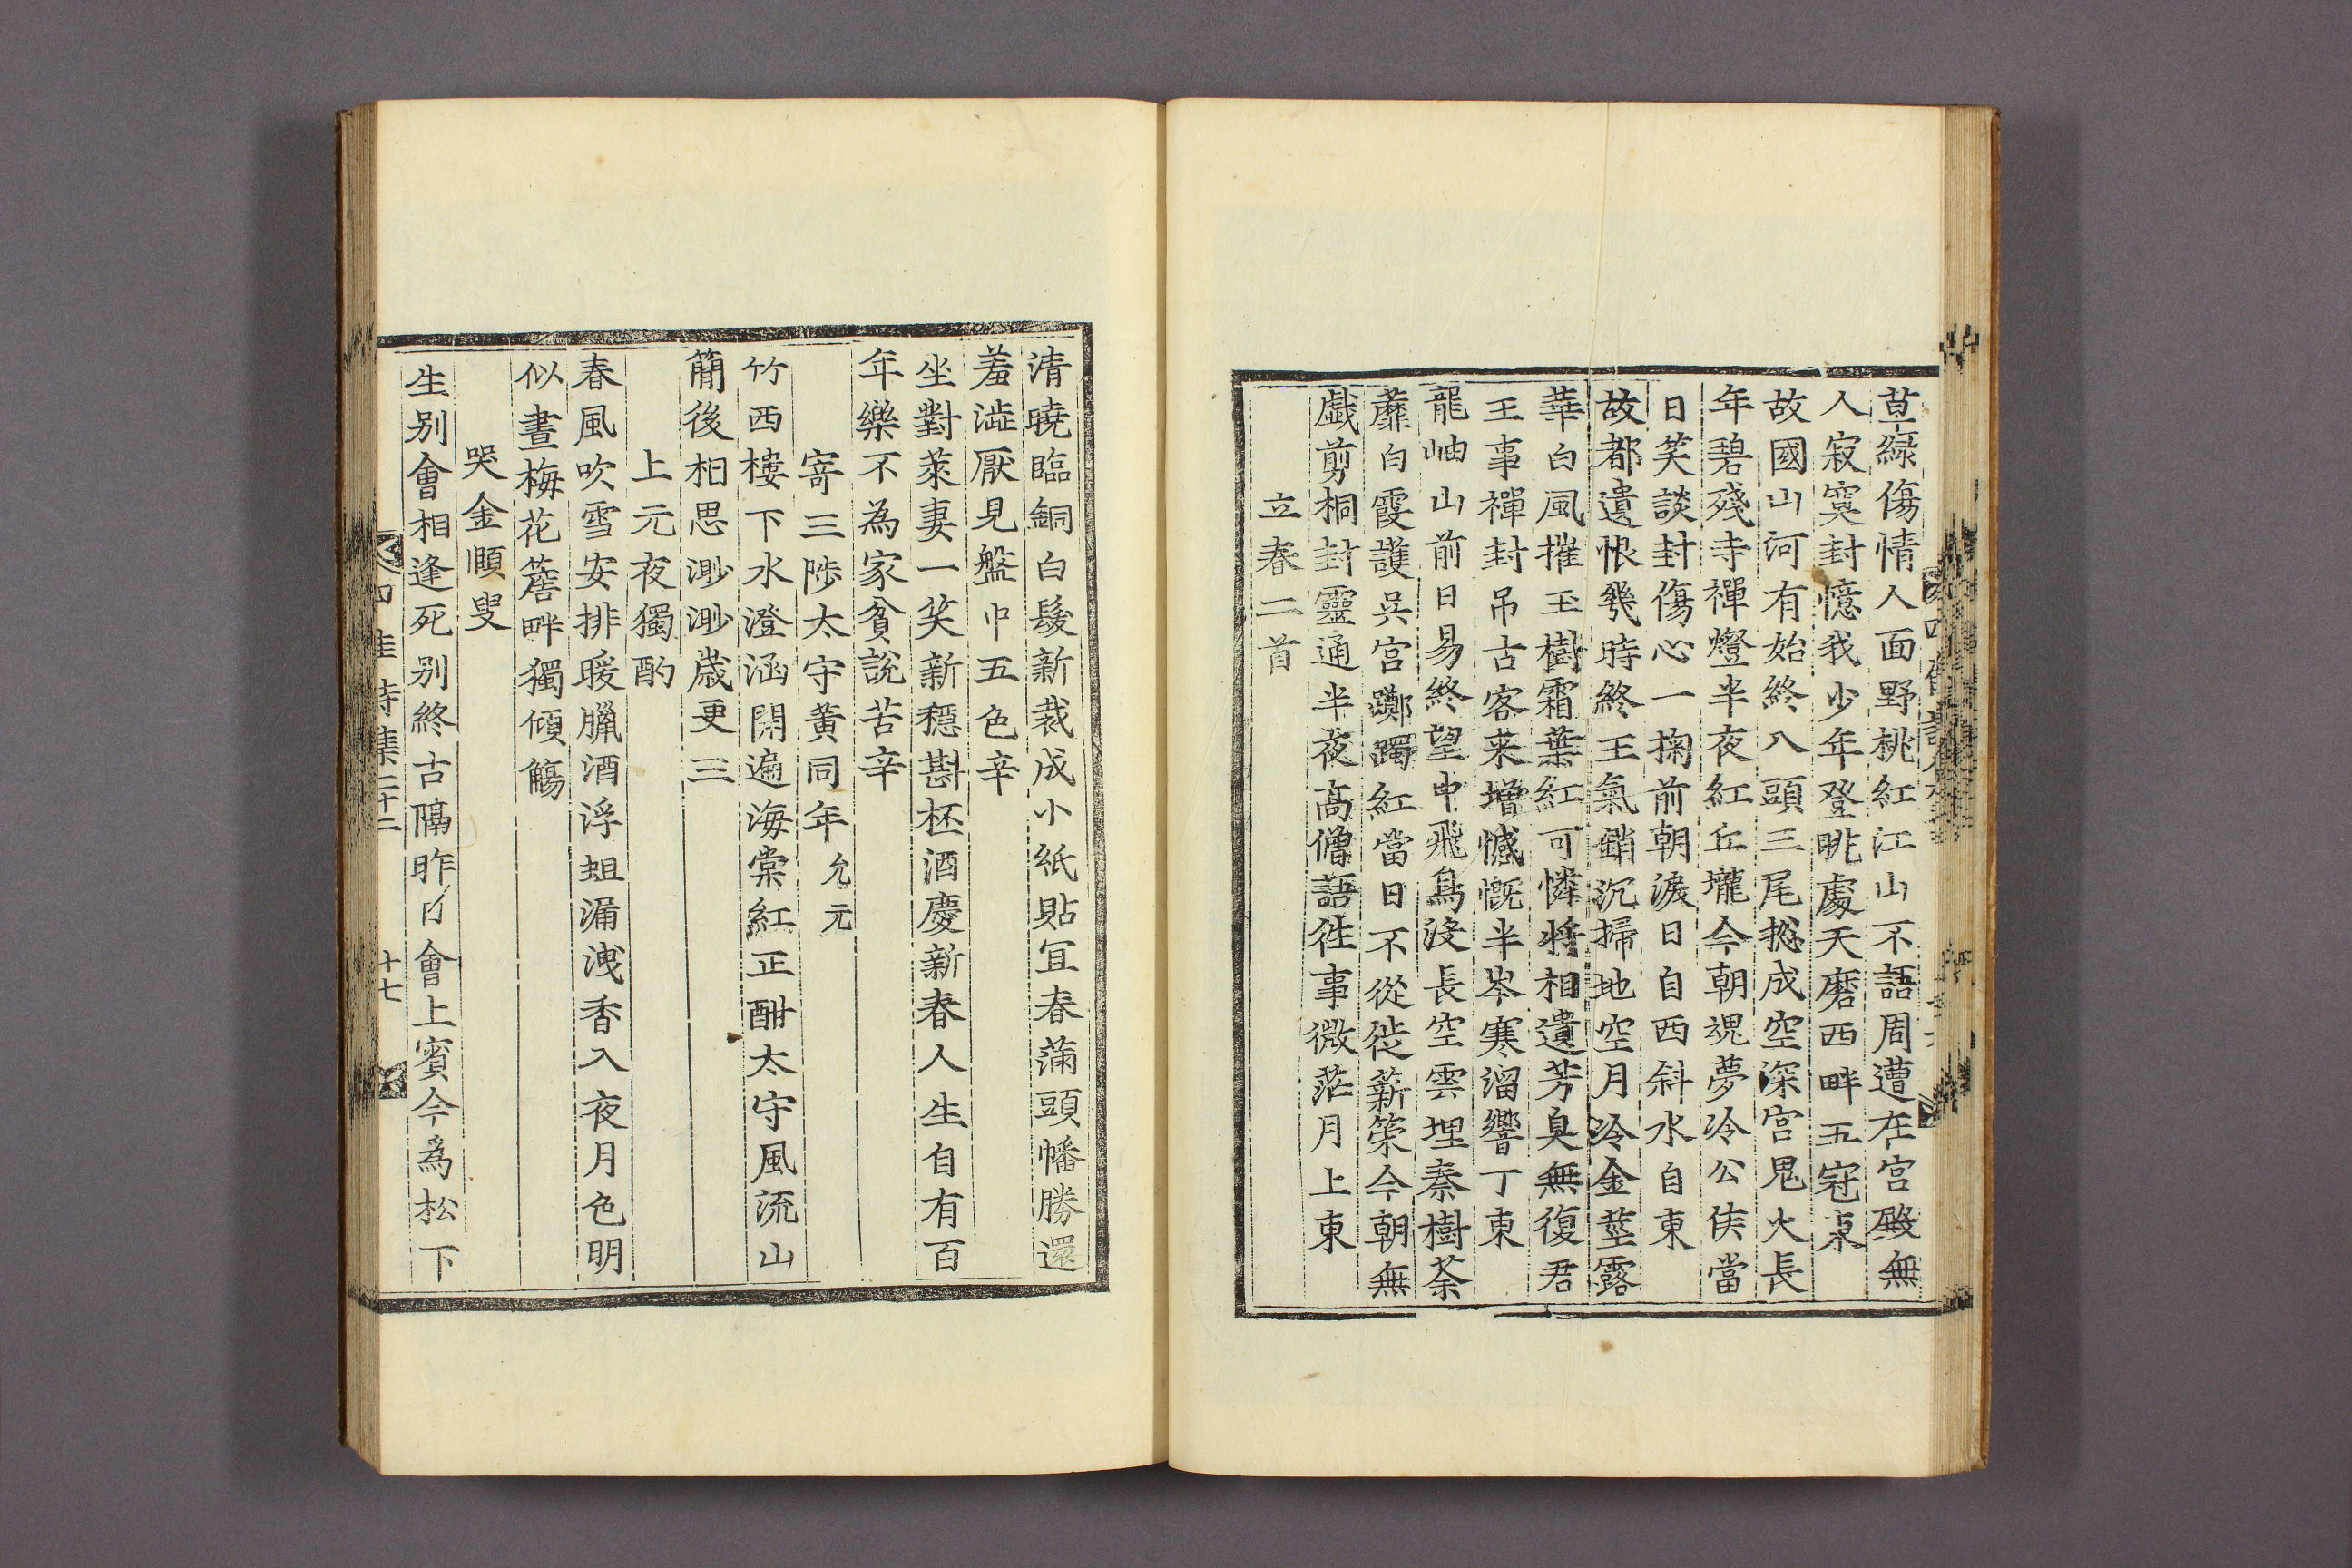 草綠傷情人面野桃紅江山不語周遭在宮殿無
人寂寞封憶我少年登眺處天磨西畔五冠東
故國山河有始終八頭三尾摠成空深宮鬼火長
年碧殘寺禪燈半夜紅丘壠今朝魂夢冷公侯當
日笑談封傷心一掬前朝淚日自西斜水自東
故都遺恨幾時終王氣銷沉掃地空月冷金莖露
華白風摧玉樹霜葉紅可憐將相遺芳臭無復君
王事禪封吊古客来增憾慨半岑寒溜響丁東
龍岫山前日易終望中飛鳥沒長空雲埋秦樹荼
蘼白霞護吳宮躑躅紅當日不從徙薪策今朝無
戱剪桐封靈通半夜高僧語徃事微茫月上東
立春二首
清曉臨銅白髮新裁成小紙貼冝春蒲頭幡勝還
羞澁厭見盤中五色辛
坐對萊妻一笑新穩斟柸酒慶新春人生自有百
年樂不為家貧說苦辛
寄三陟太守黄同年 允元
竹西樓下水澄涵開遍海棠紅正酣太守風流山
簡後相思渺渺歲更三
上元夜獨酌
春風吹雪安排暖臘酒浮蛆漏洩香入夜月色明
似晝梅花簷畔獨傾觴
哭金頤叟
生别會相逢死别終古隔昨日會上賓今爲松下
四佳詩集二十二 十七